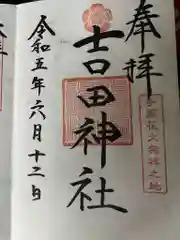 奉拝
吉田神社
令和五年六月十二日